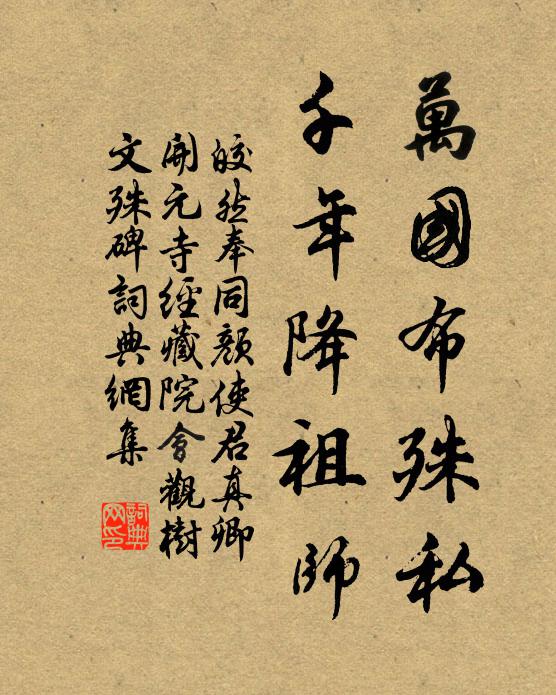 萬國布殊私
千年降祖師
皎然奉同顏使君真卿
開元寺經藏院會觀樹
文殊碑詞典網集
詞典網印